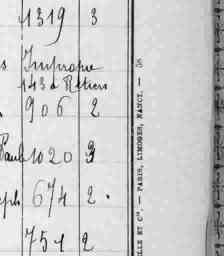 1319 3
s Impropre
143 d Retiers
906 2
Paul 1020 3
eph 674 2.
751 2
LLE ET Cie. — PARIS, LIMOGES, NANCY. — 58